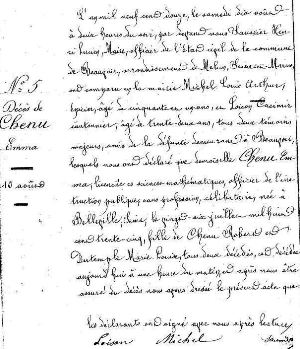 N° 5
Décès de
Chenu
Emma
10 août
L'an mil neuf cent douze, le samedi dix août
à huit heures du soir, par devant nous Saussier Hen-
ri Maire, officier de l'état civil de la commune
de arrondissement de Melun, Seine-et-Marne,
ont comparu les nommés Michel Louis Arthur,
épicier, âgé de cinquante et un ans, et Loison Casimir
cantonnier, âgé de trente-deux ans, tous deux témoins
majeurs, amis de la défunte demeurant à
lesquels nous ont déclaré que demoiselle Chenu Em-
ma, licenciée ès sciences mathématiques, officier de l'ins-
truction publique, sans profession, célibataire, née à
le vingt-six juillet mil huit
cent trente-cinq, fille de Chenu Robert et
Marie Louise, tous deux décédés, est décédée
aujourd'hui à une heure du matin et après nous être
assuré du décès nous avons dressé le présent acte que
les déclarants ont signé avec nous après lecture
Loison Michel